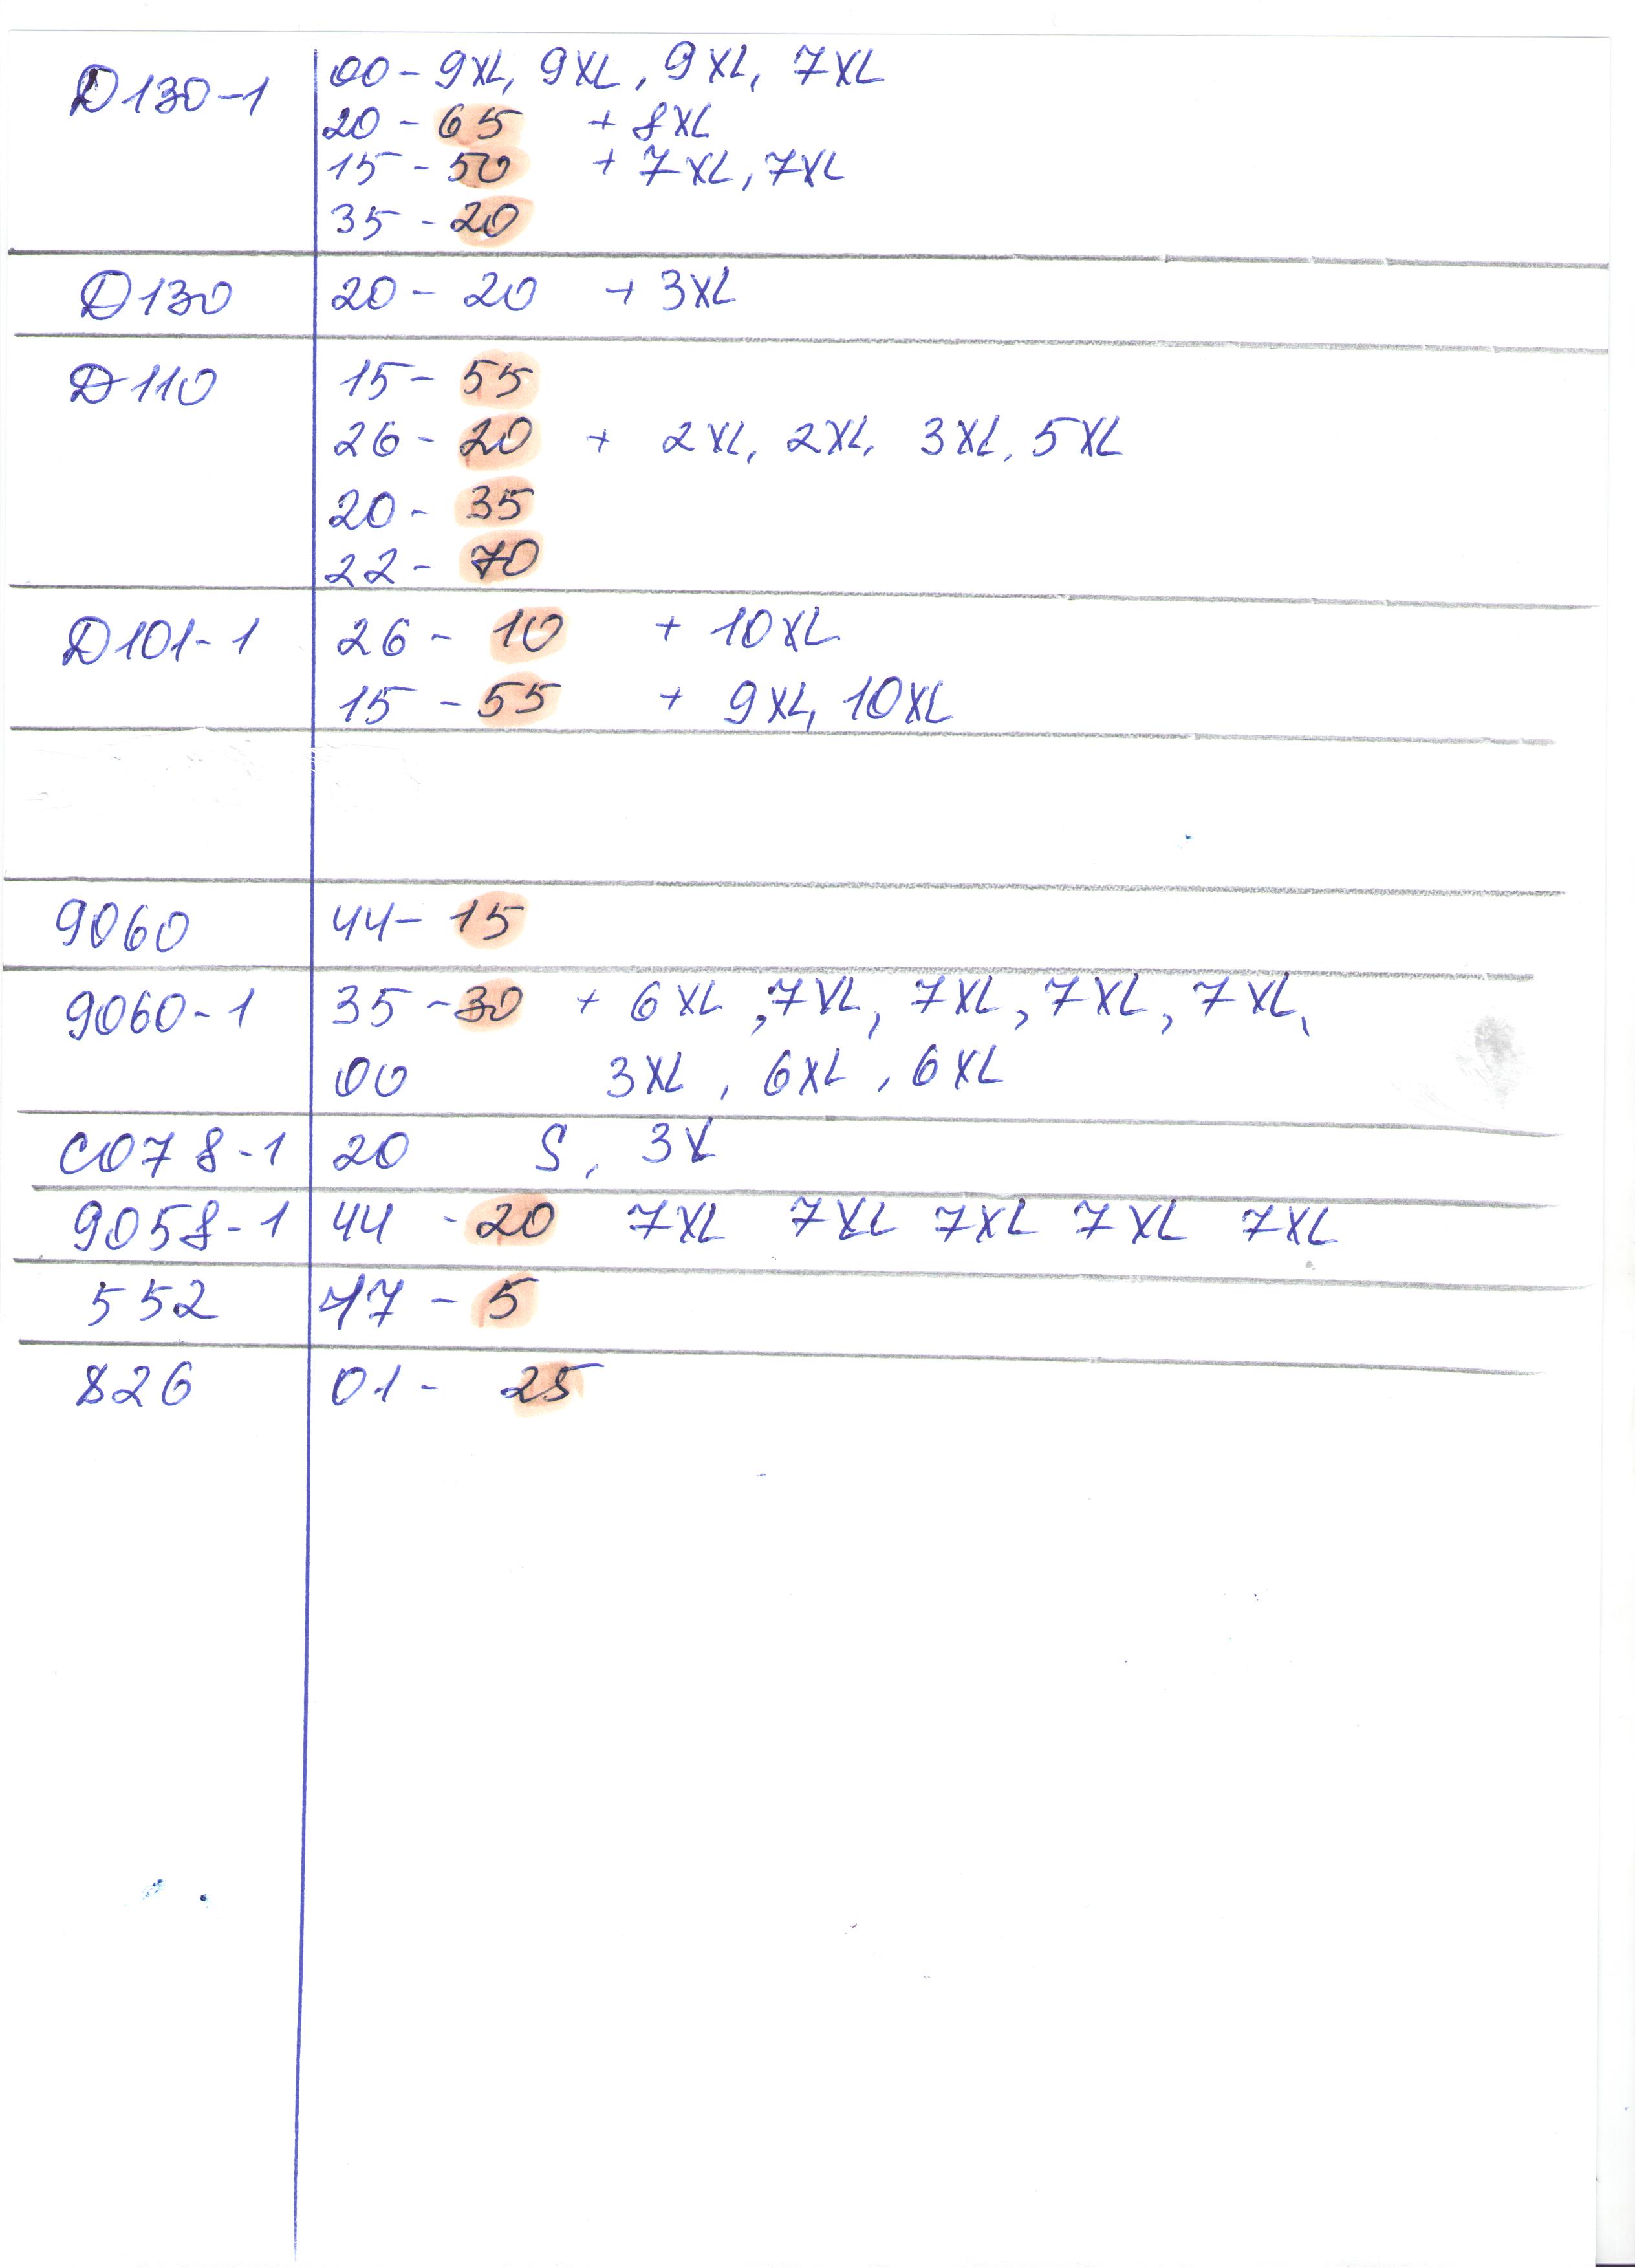 D130-1 00 - 9XL, 9XL, 9XL, 7XL
20 - 65 + 8XL
15 - 50 + 7XL, 7XL
35 - 20
D130 20 - 20 + 3XL
D110 15 - 55
26 - 20 + 2XL, 2XL, 3XL, 5XL
20 - 35
22 - 70
D101-1 26 - 10 + 10XL
15 - 55 + 9XL, 10XL
9060 44 - 15
9060-1 35 - 30 + 6XL, 7XL, 7XL, 7XL, 7XL,
00 3XL, 6XL, 6XL
C078-1 20 S, 3X
9058-1 44 - 20 7XL 7XL 7XL 7XL 7XL
552 17 - 5
826 01 - 25